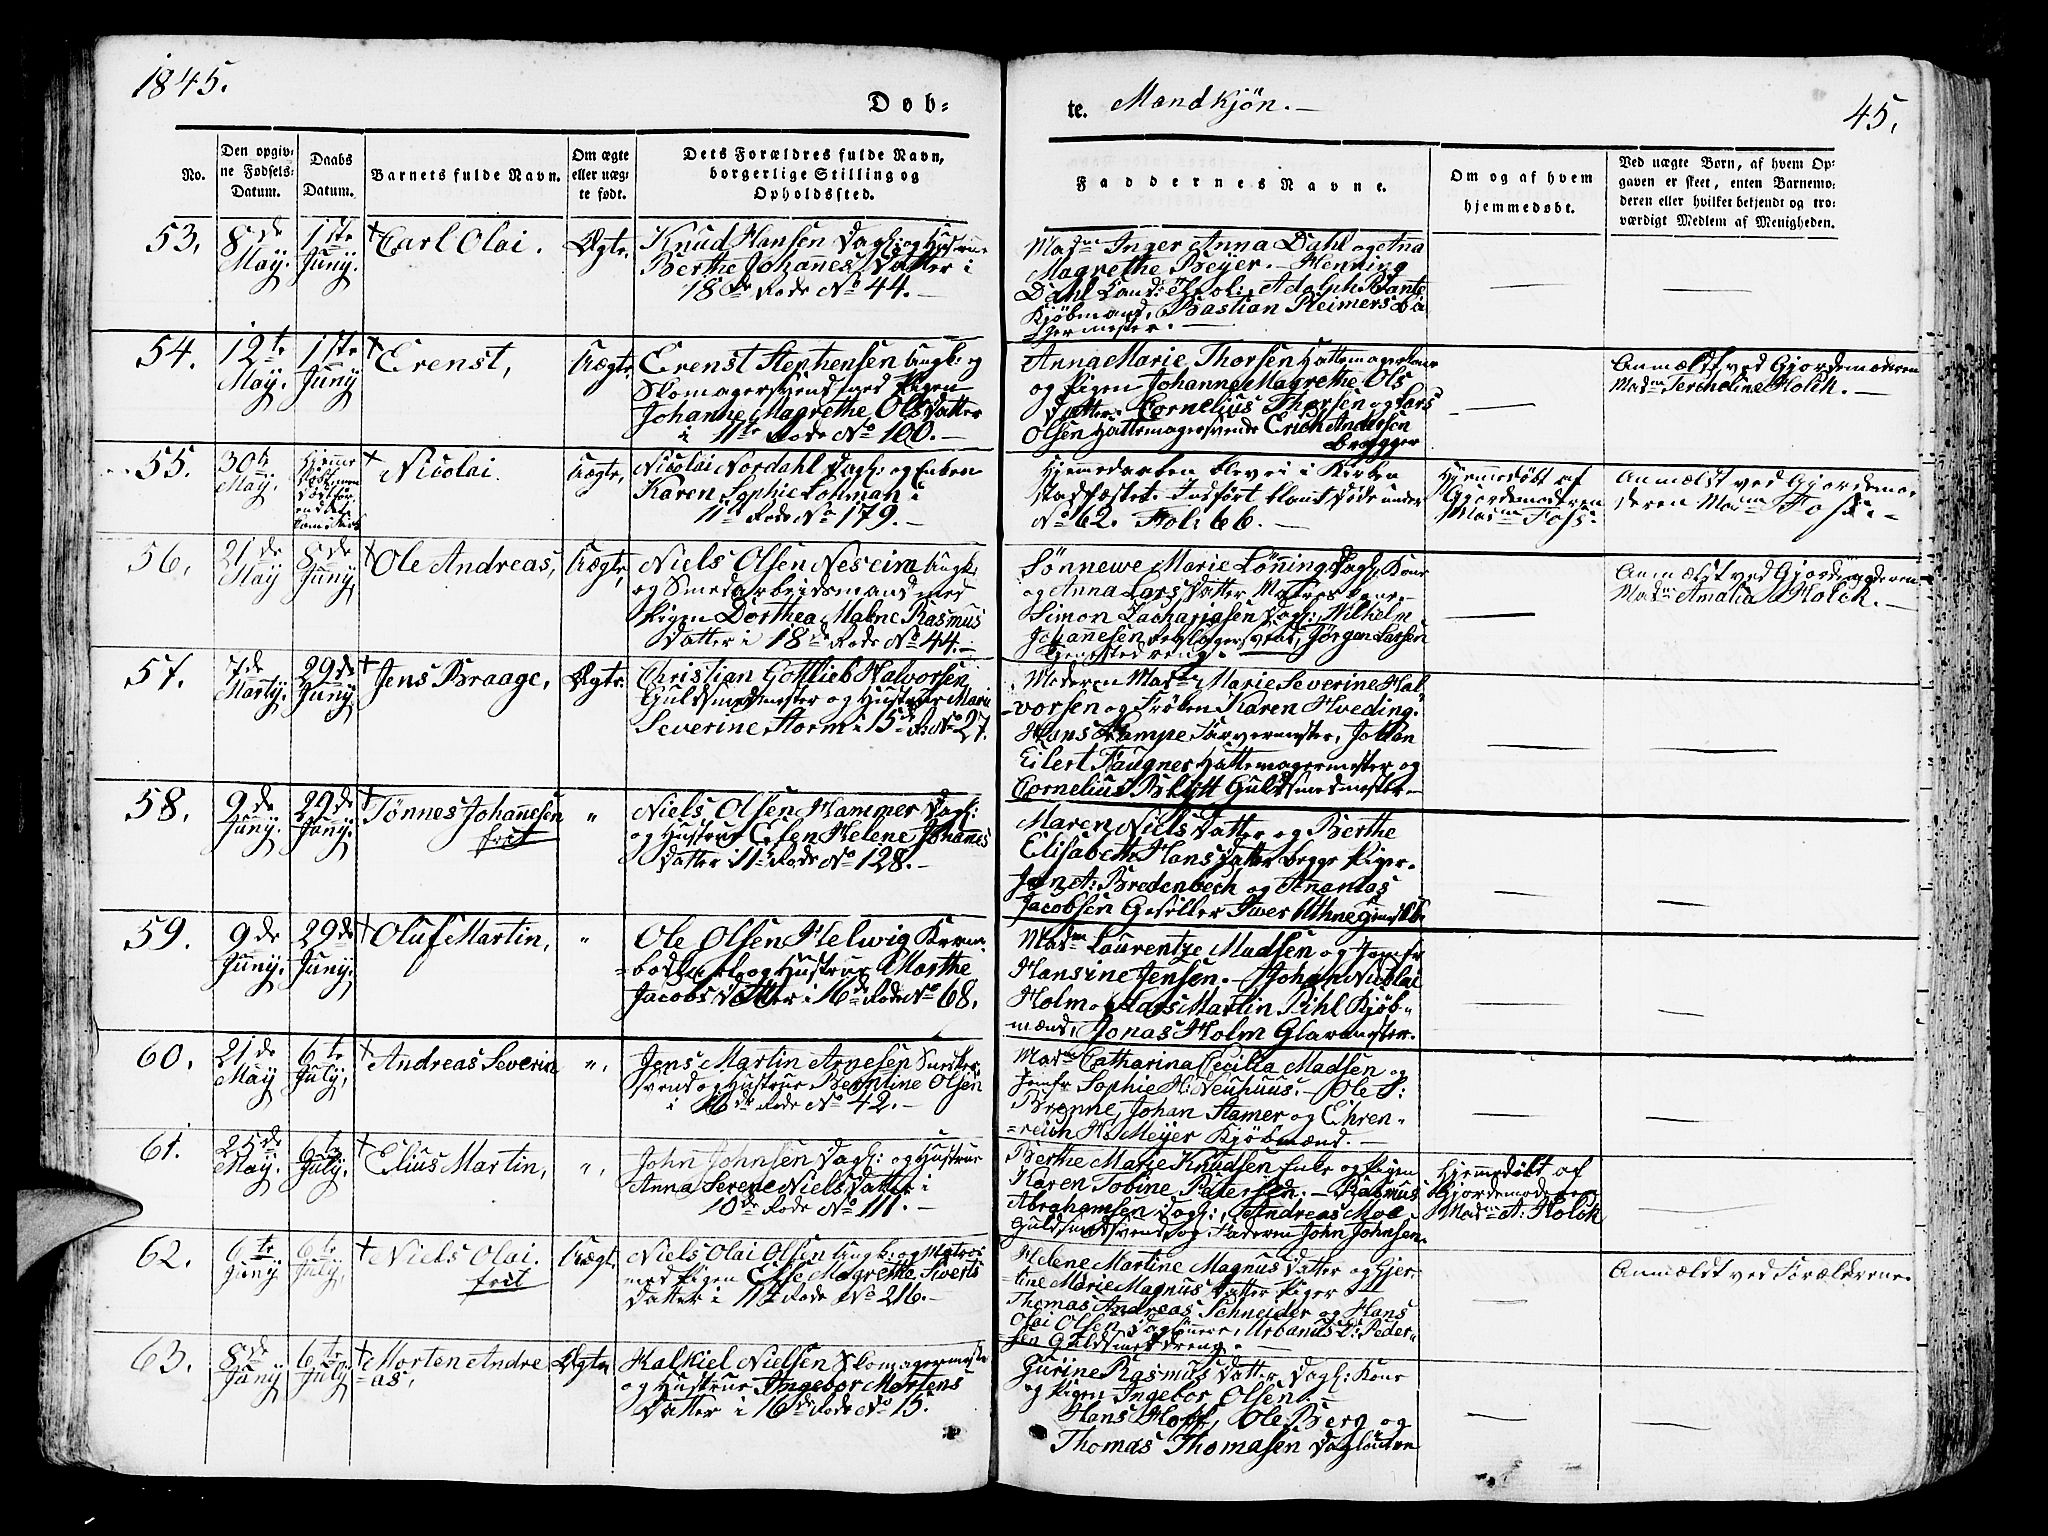 1845.
Døb-
te. Mandkjøn. —
45.
No.
Den opgiv-
ne Fødsels-
Datum.
Daabs
Datum.
Barnets fulde Navn.
Om ægte
eller uæg-
te født.
Dets Forældres fulde Navn,
borgerlige Stilling og
Opholdssted.
Faddernes Navne.
Om og af hvem
hjemmedøbt.
Ved uægte Børn, af hvem Op-
gaven er skeet, enten Barnemo-
deren eller hvilket bekjendt og tro-
værdigt Medlem af Menigheden.
53.
8de
May.
1ste
Juny.
+ Carl Olai.
Ægte.
Knud Hansen Dagl: og Hustrue
Berthe Johannes Datter i
18de Rode No 44. —
Madme Inger Anna Dahl og Ana
Magrethe Beyer. — Henning
Dahl Cand: Adolph Bante
Kjøbmænd, Bastian Reimers Bø
germester. —
54.
12te
May.
1ste
Juny
+ Erenst,
Uægte.
Erenst Stephensen Ungk: og
Skomagersvend med Pigen
Johanne Magrethe Ols Datter
i 11te Rode No 100. —
Anna Marie Thorsen Hattemagerkone
og Pigen Johanne Magrethe Ols
Datter. Cornelius Thorsen og Lars
Olsen Hattemagersvende Erich Andersen
Brygger
Anmældt ved Gjordemoderen
Madme Holck. —
55.
30te
May.
Hjemme
døbt men
død før
end det
kom i Kirk
+ Nicolai
Uægte,
Nicolai Nordahl Dagl: og Enken
Karen Sophie Lohman i
11te Rode No 179. —
Hjemedaaben blev ei i Kirken
stadfæstet. Indført blant døde under
No 62. Fol: 66. —
Hjemmedøbt af
Gjordemoderen
Madme Foss.
Anmældt ved Gjordemo-
deren Madme Foss. —
56.
21de
May
8de
Juny,
+ Ole Andreas,
Uægte,
Niels Olsen Neseim Ungk:
og Smedarbeidsmand med
Pigen Dorthea Malene Rasmus
Datter i 18de Rode No 44. —
Sønnewe Marie Lønning Dagl: Kone
og Anna Lars Datter Matros Kone. —
Simon Zachariasen Dagl: Wilhelm
Johannesen svend, Jørgen Larsen
Tjenestedreng. —
Anmældt ved Gjordemoderen
Madme Amalia Holck. —
57.
7de
Marty.
29de
Juny.
+ Jens Braage,
Ægte.
Christian Gottlieb Halvorsen,
Guldsmedmester og Hustrue Marie
Severine Storm i 15de R: No 27.
Moderen Madme Marie Severine Hal
vorsen og Frøken Karen Hveding.
Hans Krampe Farvermester, Johan
Eilert Faugner Hattemagermester og
Cornelius Blytt Guldsmedmester. —
58.
9de
Juny.
29de
Juny.
+ Tønnes Johannesen
frit
"
Niels Olsen Hammer Dagl:
og Hustrue Elen Helene Johannes
Datter i 11te Rode No 128. —
Maren Niels Datter og Berthe
Elisabeth Hans Datter begge Piger.
Jan A: Bredenbech og Ananias
Jacobsen Geseller Iver Uthne
59.
9de
Juny.
29de
Juny.
+ Oluf Martin,
"
Ole Olsen Helwig Kram-
bodkarl og Hustrue Marthe
Jacobs Datter i 16de Rode No 68.
Madme Laurentze Madsen og Jomfr
Hansine Jensen. — Johan Nicolai
Holm og Hars Martin Pihl Kjøb-
mænd, Jonas Holm Glarmester.
60.
21de
May
6te
July,
+ Andreas Severin
",
Jens Martin Arnesen
svend og Hustrue Berntine Olsen
i 16de Rode No 42. —
Madme Catharina Cecilia Madsen og
Jomfr Sophie H: Neuhuus. — Ole S:
Brenne, Johan Stamer og Ehren-
reich H: Meyer Kjøbmænd. —
61.
25de
May,
6te
July.
+ Elius Martin,
",
John Johnsen Dagl: og Hustrue
Anna Serene Niels Datter i
10de Rode No 111. —
Berthe Marie Knudsen Enke og Pigen
Karen Tobine Petersen. — Rasmus
Abrahamsen Dagl:, Andreas Moe
Guldsmedsvend og Faderen John Johnsen.
Hjemedøbt af
Gjordemoderen
Madme A: Holck
62.
6te
Juny
6te
July,
+ Niels Olai.
frit
Uægt.
Niels Olai Olsen Ungk: og Matros
med Pigen Else Magrethe Siverts
Datter i 11te Rode No 216. —
Helene Martine Magnus Datter og Gjer-
tine Marie Magnus Datter Piger
Thomas Andreas Schneider og Hans
Olai Olsen Daglønnere, Urbanus L: Peder-
sen Guldsmeddreng. —
Anmældt ved Forældrene.
63.
8de
Juny
6te
July
+ Morten Andre
-as,
Ægte.
Halkiel Nielsen Skomagermester
og Hustrue Ingebor Mortens
Datter i 16de Rode No 15.
Gurine Rasmus Datter Dagl: Kone
og Pigen Ingebor Olsen. —
Hans Hoff, Ole Berg og
Thomas Thomasen Daglønnere